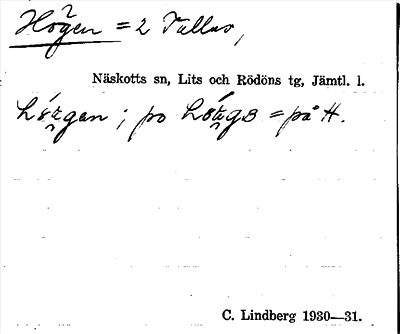 Högen = 2 Tallar,
Näskotts sn, Lits och Rödöns tg, Jämtl. l.
; po = på H.
C. Lindberg 1930—31.